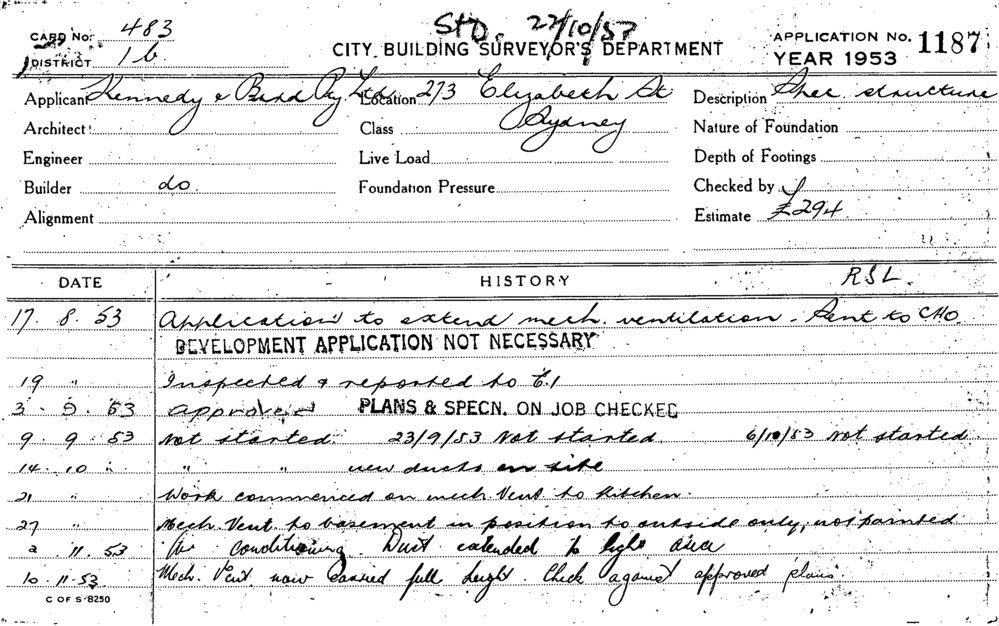 STD. 22/10/57
CARD No. 483
CITY BUILDING SURVEYOR'S DEPARTMENT
APPLICATION No. 1187
DISTRICT 1b
YEAR 1953
Applicant Kennedy & Bird Pty Ltd Location 273 Elizabeth St Description Spec. structure
Architect Class Sydney Nature of Foundation
Engineer Live Load Depth of Footings
Builder do. Foundation Pressure Checked by
Alignment Estimate £294
DATE HISTORY RSL.
17. 8. 53 Application to extend mech. ventilation - Sent to CHO.
DEVELOPMENT APPLICATION NOT NECESSARY
19 " Inspected & reported to E.1
3. 9. 53 Approved PLANS & SPECN. ON JOB CHECKED
9. 9. 53 Not started 23/9/53 Not started. 6/10/53 Not started.
14. 10 " " " new ducts on site
21 " Work commenced on mech. Vent to Kitchen.
27 " Mech. Vent to basement in position to outside only, not painted
2 11. 53 Air conditioning Duct extended to light area
10. 11. 53 Mech. Vent now carried full height. Check against approved plans.
C OF S 8250